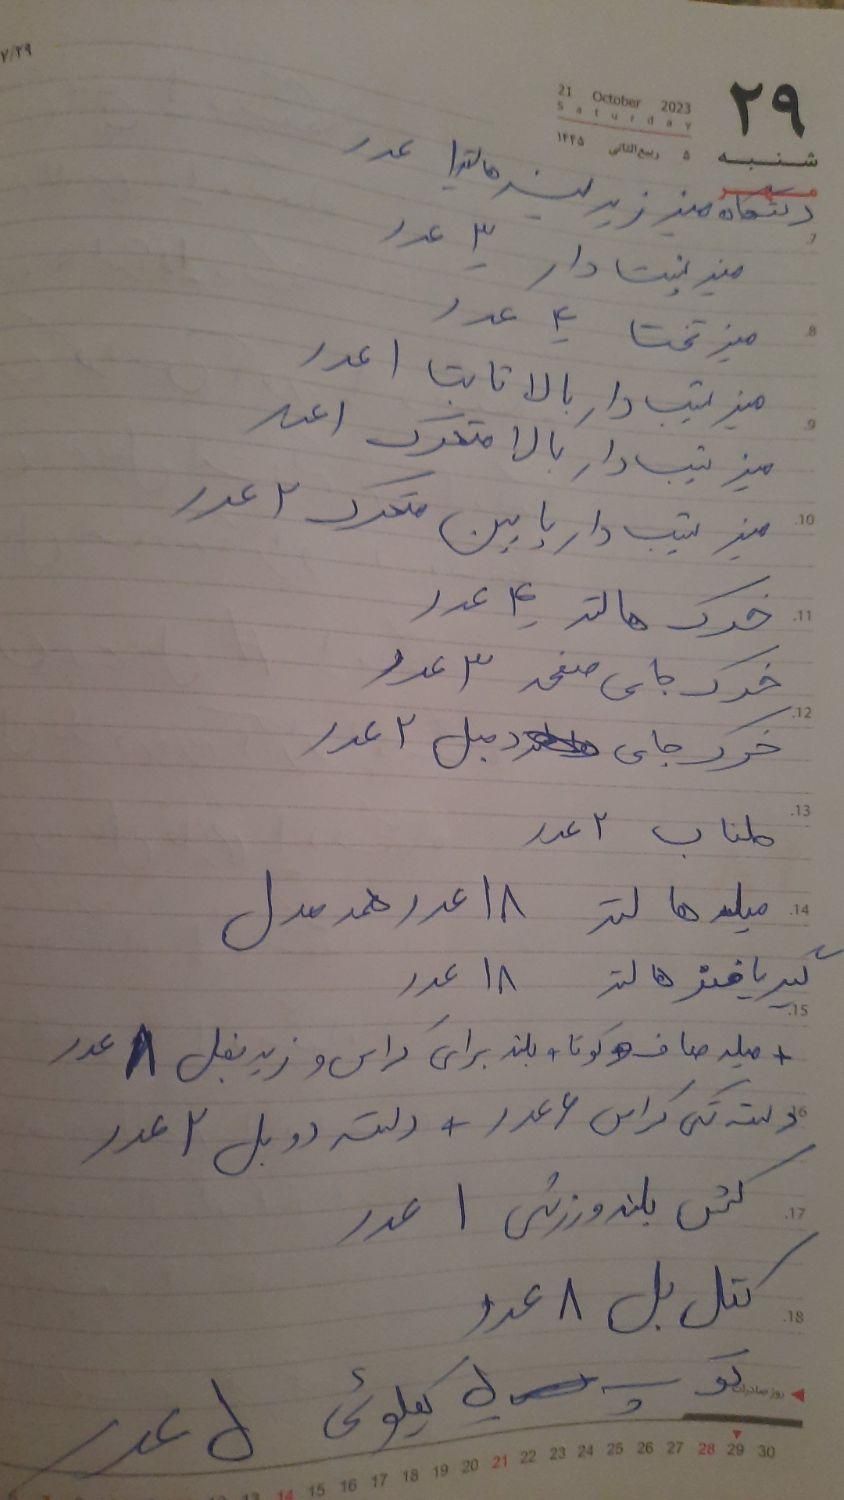 ۷/۲۹
۲۹
21 October 2023
Saturday
۵ ربیع‌الثانی ۱۴۴۵
شنبه
مهر
دستگاه میز زیر سینه هالتر ۱ عدد
میز شیب دار ۳ عدد
میز تخت ۴ عدد
میز شیب دار بالا ثابت ۱ عدد
میز شیب دار بالا متحرک ۱ عدد
میز شیب دار پایین متحرک ۲ عدد
خرک هالتر ۴ عدد
خرک جای صفحه ۳ عدد
خرک جای دمبل ۲ عدد
طناب ۲ عدد
میله هالتر ۱۸ عدد همه مدل
گیر یا فنر هالتر ۱۸ عدد
+ میله صاف کوتاه + بلند برای کراس و زیر بغل ۸ عدد
دسته تکی کراس ۶ عدد + دسته دوبل ۲ عدد
کش بلند ورزشی ۱ عدد
کتل بل ۸ عدد
توپ ۵ کیلوئی ۵ عدد
7.
8.
9.
10.
11.
12.
13.
14.
15.
16
17.
18.
روز صادرات
13 14 15 16 17 18 19 20 21 22 23 24 25 26 27 28 29 30